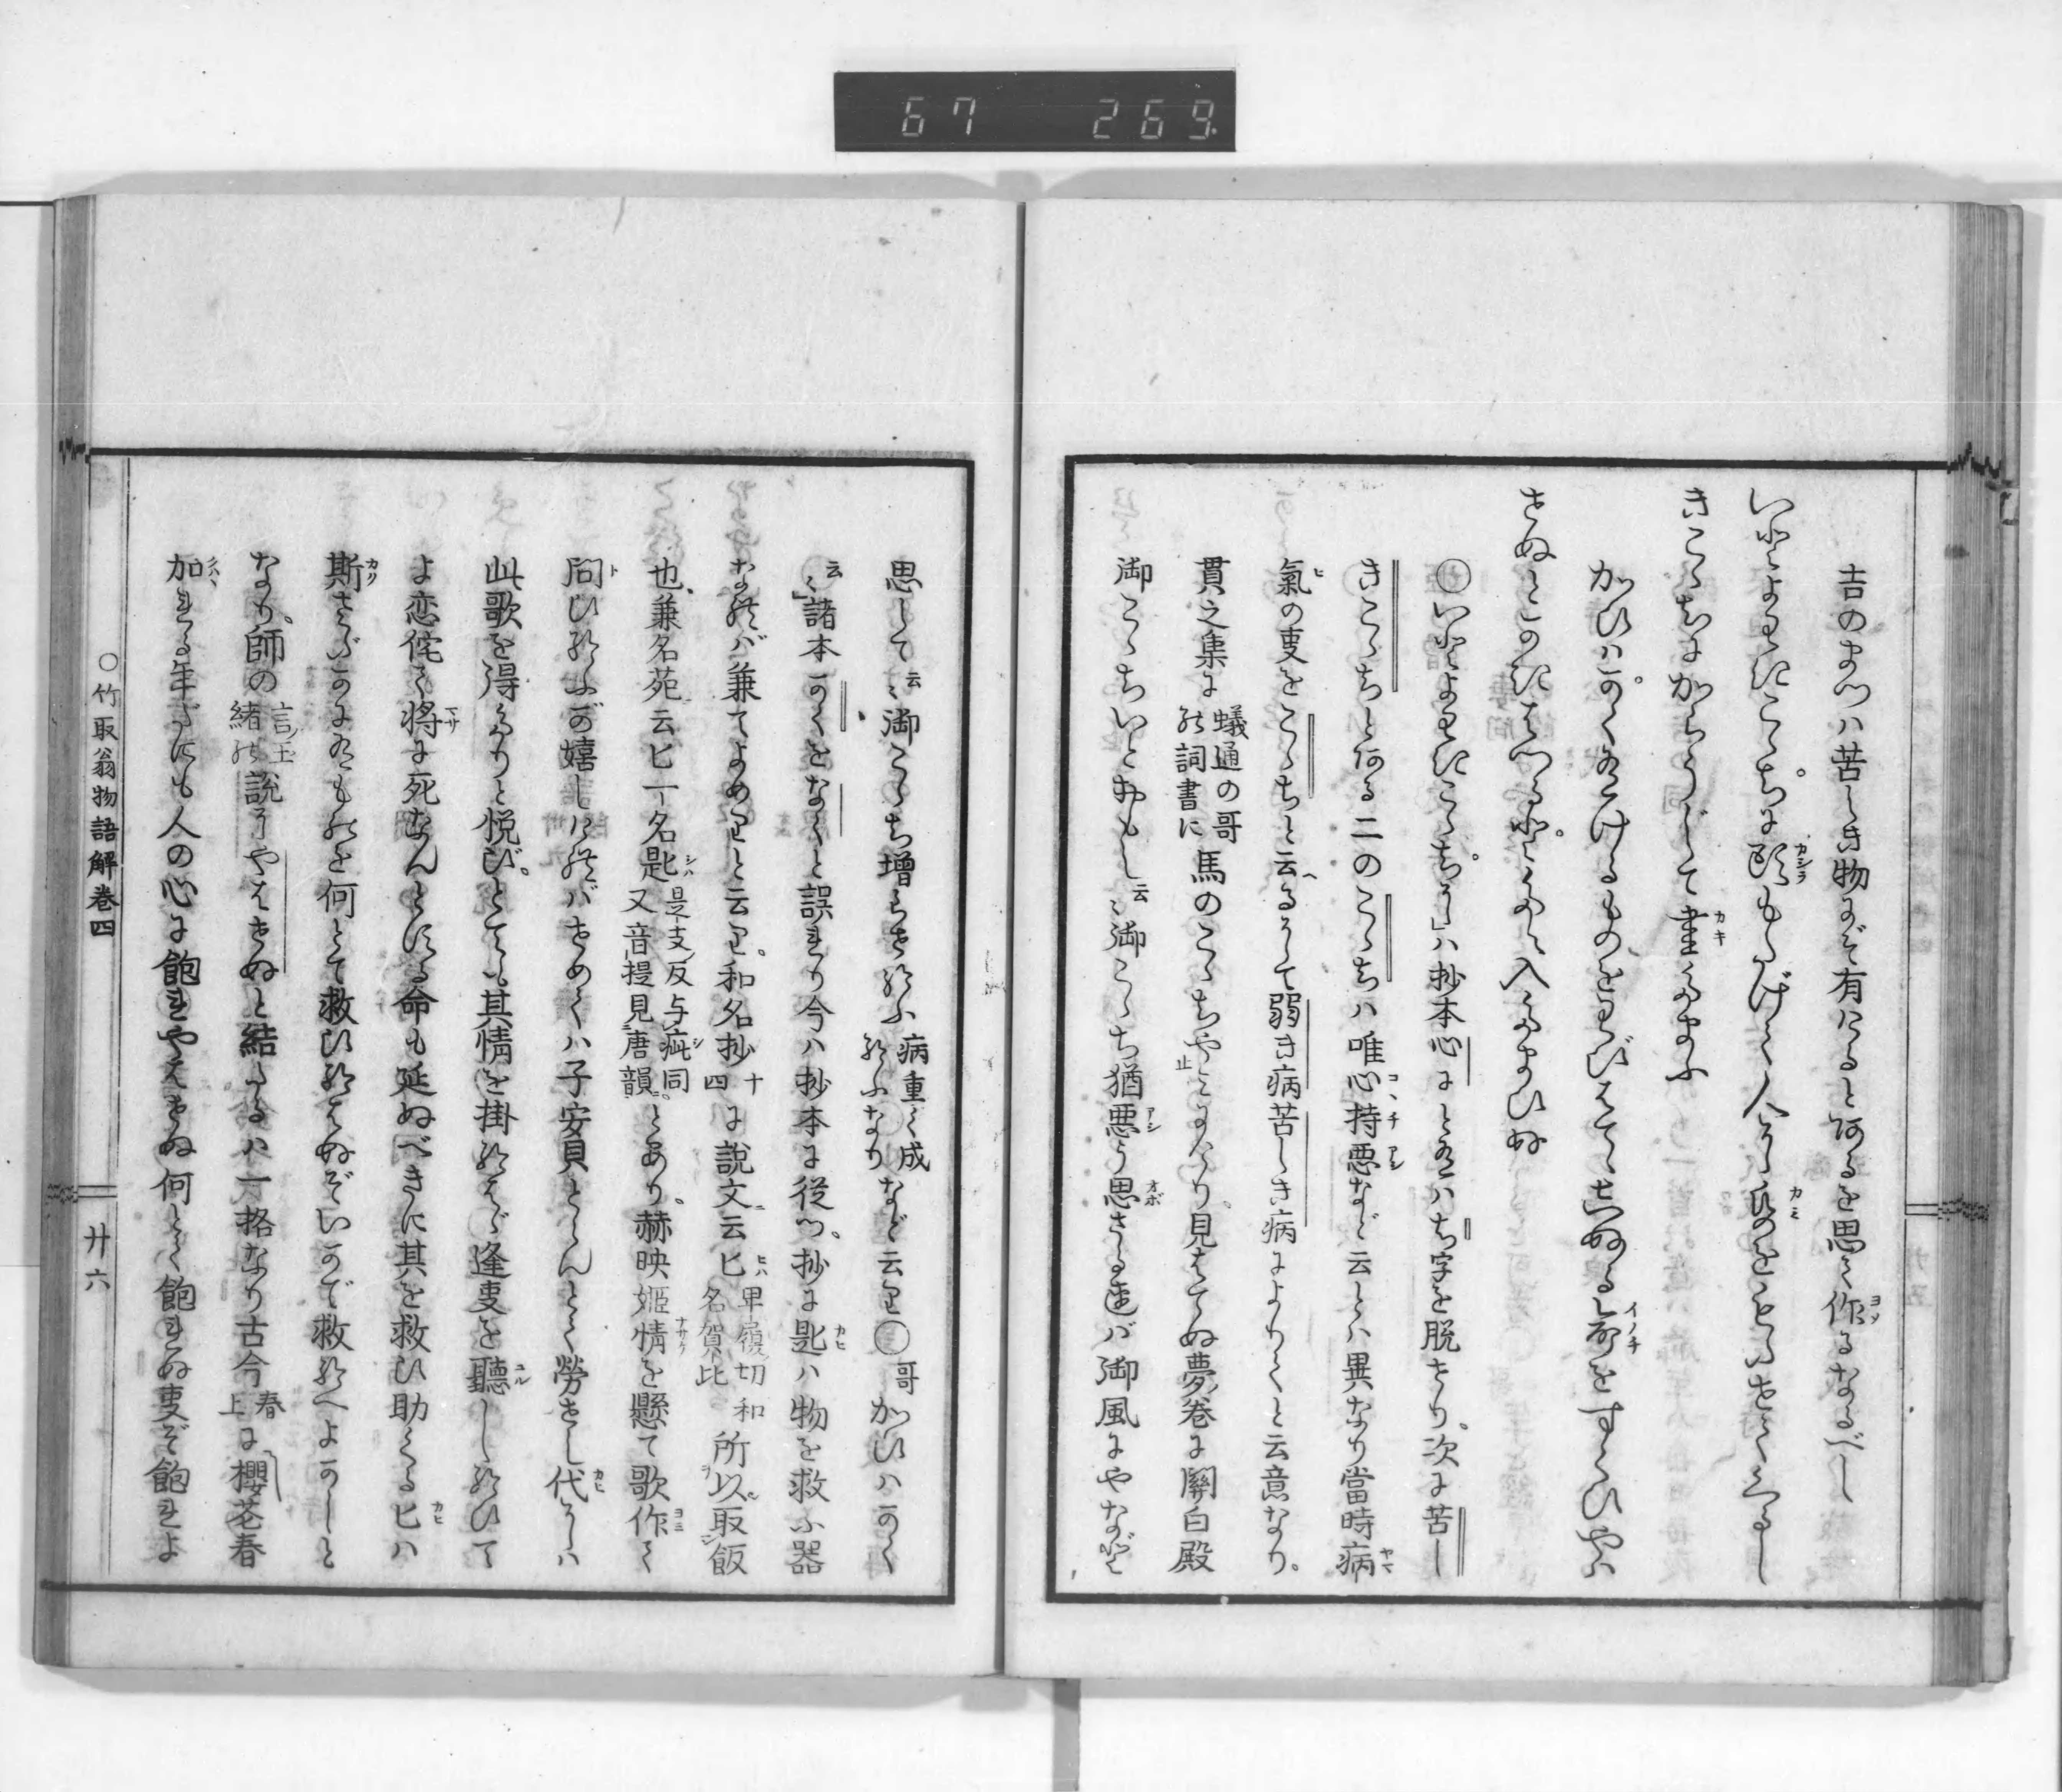 67 269
吉のまつハ苦しき物にぞ有けると阿るを思て作るなるべし
いとよわきこゝちに頭もたげて人に紙をもたせてくるし
きこゝちにからうじて書たまふ
かひハかく有けるものをわびはてゝしぬる命をすくひやハ
せぬとかきはつると。たえ入たまひぬ
○いとよわきこゝちに」ハ抄本心にと有ハち字を脱せり、次に苦し
きこゝちと阿る二のこゝちハ唯心持悪など云とハ異なり當時病
氣の事をこゝちと云へるにて弱き病苦しき病によりてと云意なり。
貫之集に蟻通の哥の詞書に馬のこゝちやみにけり、見はてぬ夢ノ卷に關白殿
御こゝちいとおもし云〻御こゝち猶悪う思さるれバ御風にやなど
思して云〻御こゝち増らせ給ふ病重く成給ふなりなど云り○哥かひハかく
云〻」諸本かくをなくと誤れり今ハ抄本に従つ。抄に匙ハ物を救ふ器
なれバ兼てよめりと云り。和名抄十四に說文ニ云匕卑履切和名賀比所以取飯
也、兼名苑ニ云匕一名匙是支反与疵同又音提見唐韻とあり。赫映姫情を懸て歌作て
問ひ給ふが嬉しけれバせめてハ子安貝とらんとて勞せし代にハ
此歌を得たりと悦び。とても其情を掛給はゞ逢事を聽し給ひて
よ恋侘て将に死なんとする命も延ぬべきに其を救ひ助くる匕ハ
斯さぶかに有ものを何とて救ひ給はぬぞいかで救給へよかしと
なり。師の言玉緒の說にやはせぬと結たるハ一格なり古今春上に櫻花春
加はれる年だにも人の心に飽れやはせぬ何とて飽れぬ事ぞ飽れよ
○竹取翁物語解卷四
廿六